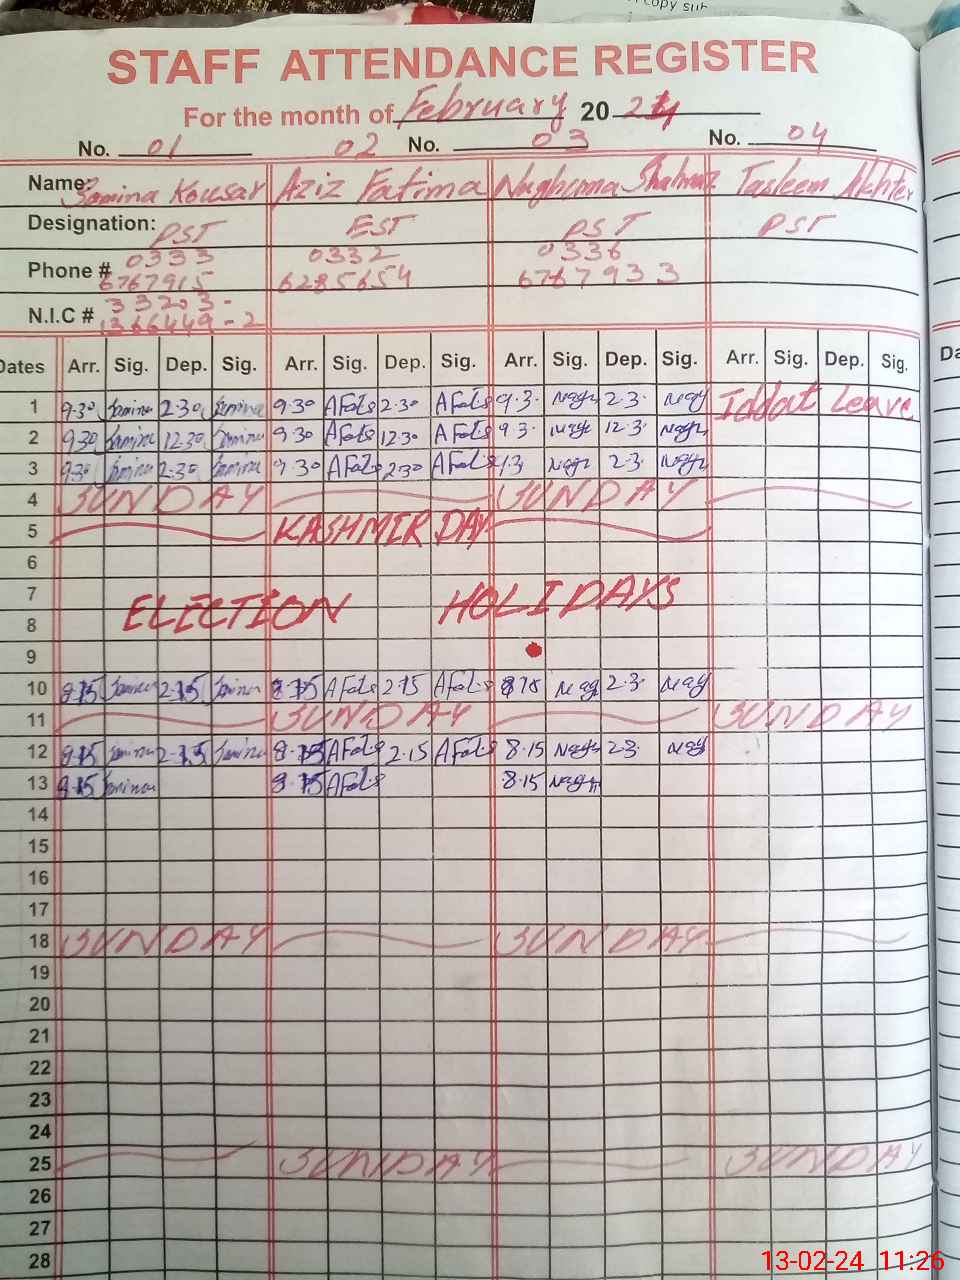 copy sub
STAFF ATTENDANCE REGISTER
For the month of February 20 24
No. 01 02 No. 03 No. 04
Name: Samina Kousar Aziz Fatima Naghuma Shahnaz Tasleem Akhter
Designation: PST EST PST PST
0333 0332 0336
Phone # 6767915 6285654 6767933
33203-
N.I.C # 1366449-2
Dates Arr. Sig. Dep. Sig. Arr. Sig. Dep. Sig. Arr. Sig. Dep. Sig. Arr. Sig. Dep. Sig.
1 9.30 Samina 2.30 Samina 9.30 AFat 2.30 AFat 9.3 Nagh 2.3 Nagh Iddat Leave
2 9.30 Samina 12.30 Samina 9.30 AFat 12.30 AFat 9.3 Nagh 12.3 Nagh
3 9.30 Samina 2.30 Samina 9.30 AFat 2.30 AFat 9.3 Nagh 2.3 Nagh
4 SUNDAY SUNDAY
5 KASHMIR DAY
6
7
ELECTION HOLIDAYS
8
9
10 8.15 Samina 2.15 Samina 8.15 AFat 2.15 AFat 8.15 Nagh 2.3 Nagh
11 SUNDAY SUNDAY
12 8.15 Samina 2.15 Samina 8.15 AFat 2.15 AFat 8.15 Nagh 2.3 Nagh
13 8.15 Samina 8.15 AFat 8.15 Nagh
14
15
16
17
18 SUNDAY SUNDAY
19
20
21
22
23
24
25 SUNDAY SUNDAY
26
27
28
Da
13-02-24 11:26